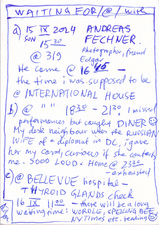 WAITING FOR/@/with
a) 15 IX 2024 ANDREAS
SUN 15-20 FECHNER.
@ 319 Photographer, friend
He came @ 16
the time i was supposed to be
@ INTERNATIONAL HOUSE
b) @ " " 18:35 - 21:30 I missed
performances but caught DINER
My desk neighbour when the RUSSIAN
WIFE of a diplomat in DC, I gave
her my card, curious if she contacts
me. SOOO LOUD & Home @ 23:35
- exhausted
c) @ BELLEVUE hospital -
THYROID GLANDS check
16 IX 11:00 - there will be a long
waiting time! WORDLE, SPELLING BEE,
NYTimes etc. reading